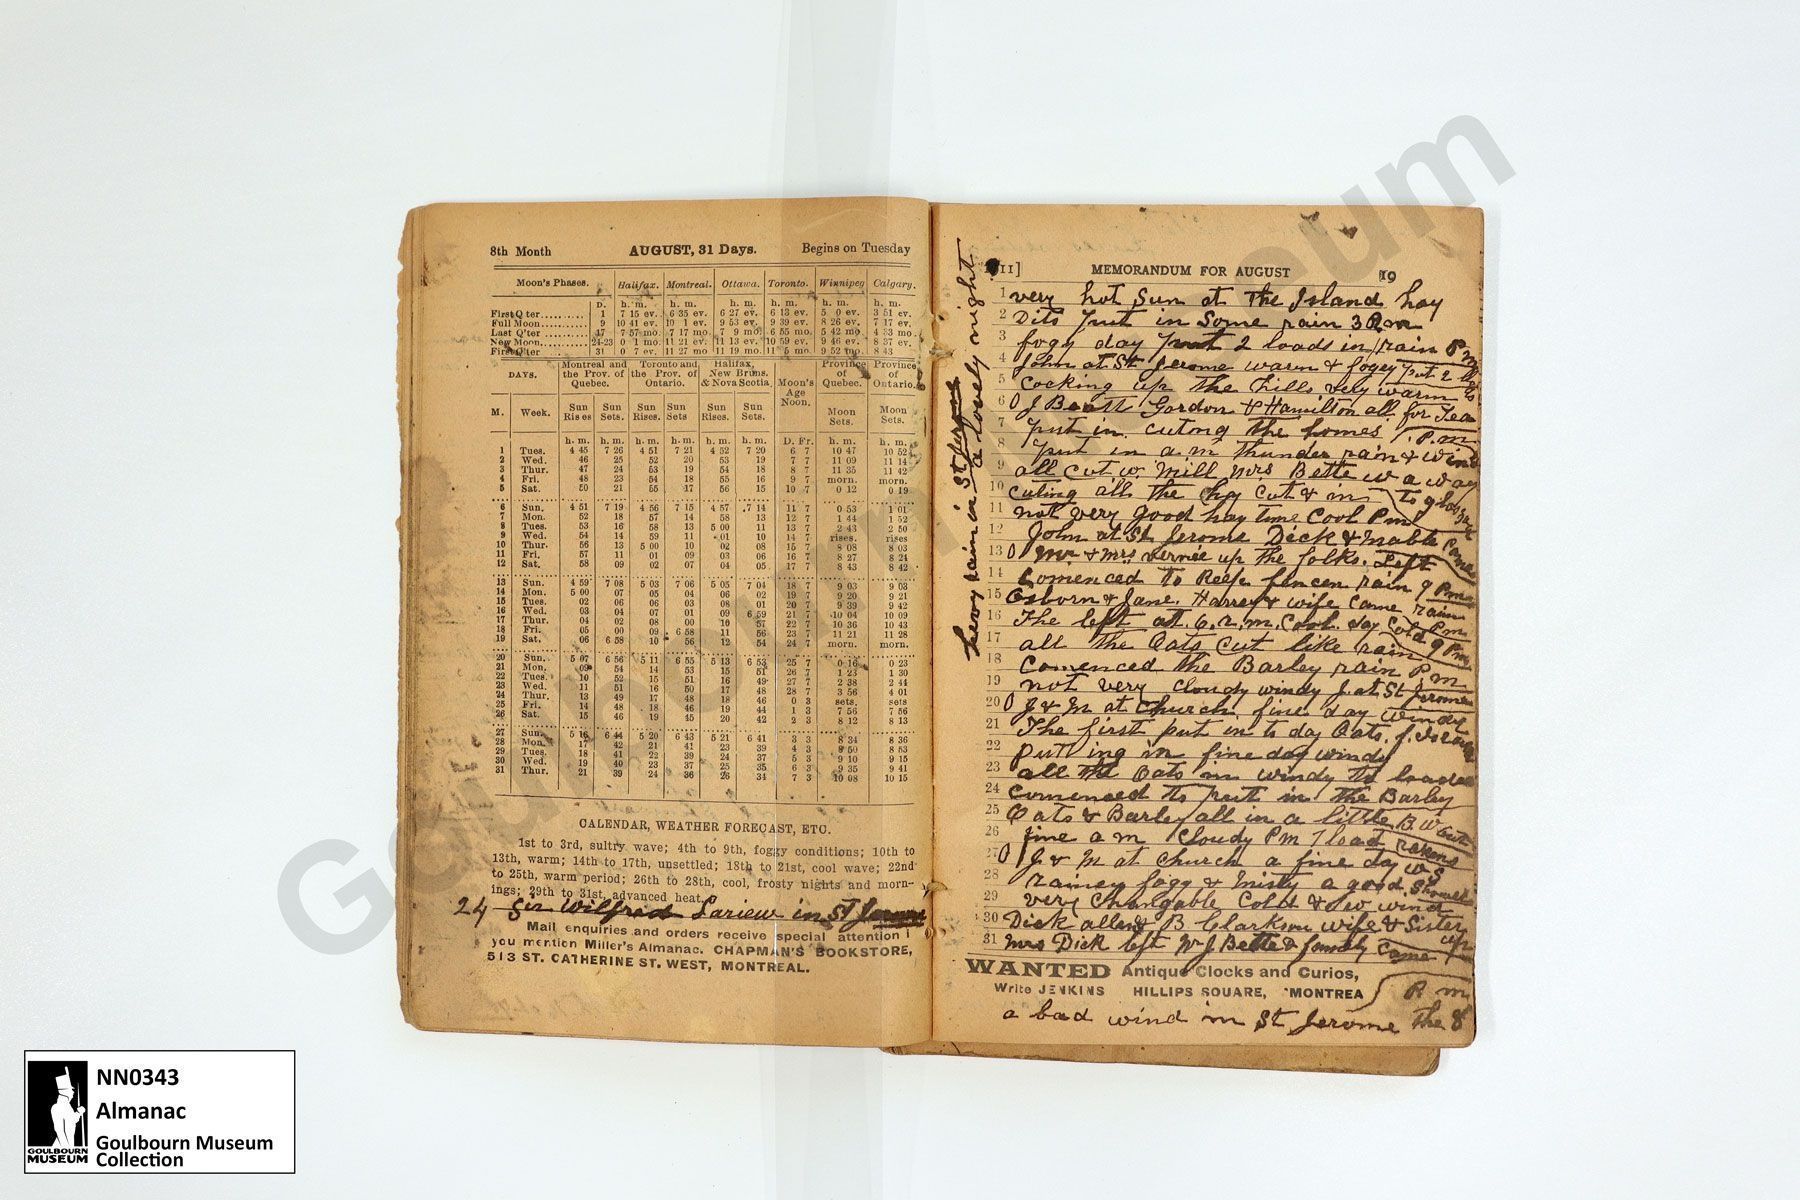 8th Month AUGUST, 31 Days. Begins on Tuesday
Moon's Phases. Halifax. Montreal. Ottawa. Toronto. Winnipeg Calgary.
D. h. m. h. m. h. m. h. m. h. m. h. m.
First Q'ter 1 7 15 ev. 6 35 ev. 6 27 ev. 6 13 ev. 5 0 ev. 3 51 ev.
Full Moon 9 10 41 ev. 10 1 ev. 9 53 ev. 9 39 ev. 8 26 ev. 7 17 ev.
Last Q'ter 17 7 57 mo. 7 17 mo. 7 9 mo. 6 55 mo. 5 42 mo. 4 33 mo.
New Moon 24-23 0 1 mo. 11 21 ev. 11 13 ev. 10 59 ev. 9 46 ev. 8 37 ev.
First Q'ter 31 0 7 ev. 11 27 mo 11 19 mo. 11 5 mo. 9 52 mo. 8 43
DAYS. Montreal and the Prov. of Quebec. Toronto and the Prov. of Ontario. Halifax, New Bruns. & Nova Scotia Moon's Age Noon. Province of Quebec. Province of Ontario.
M. Week. Sun Rises Sun Sets. Sun Rises. Sun Sets Sun Rises. Sun Sets. Moon Sets. Moon Sets.
h. m. h. m. h. m. h. m. h. m. h. m. D. Fr. h. m. h. m.
1 Tues. 4 45 7 26 4 51 7 21 4 52 7 20 6 7 10 47 10 52
2 Wed. 46 25 52 20 53 19 7 7 11 09 11 14
3 Thur. 47 24 53 19 54 18 8 7 11 35 11 42
4 Fri. 48 23 54 18 55 16 9 7 morn. morn.
5 Sat. 50 21 55 17 56 15 10 7 0 12 0 19
6 Sun. 4 51 7 19 4 56 7 15 4 57 7 14 11 7 0 53 1 01
7 Mon. 52 18 57 14 58 13 12 7 1 44 1 52
8 Tues. 53 16 58 13 5 00 11 13 7 2 43 2 50
9 Wed. 54 14 59 11 01 10 14 7 rises. rises
10 Thur. 56 13 5 00 10 02 08 15 7 8 08 8 03
11 Fri. 57 11 01 09 03 06 16 7 8 27 8 24
12 Sat. 58 09 02 07 04 05 17 7 8 43 8 42
13 Sun. 4 59 7 08 5 03 7 06 5 05 7 04 18 7 9 03 9 03
14 Mon. 5 00 07 05 04 06 02 19 7 9 20 9 21
15 Tues. 02 06 06 03 08 01 20 7 9 39 9 42
16 Wed. 03 04 07 01 09 6 59 21 7 10 04 10 09
17 Thur. 04 02 08 00 10 57 22 7 10 36 10 43
18 Fri. 05 00 09 6 58 11 56 23 7 11 21 11 28
19 Sat. 06 6 58 10 56 12 54 24 7 morn. morn.
20 Sun. 5 07 6 56 5 11 6 55 5 13 6 53 25 7 0 16 0 23
21 Mon. 09 54 14 53 15 51 26 7 1 23 1 30
22 Tues. 10 52 15 51 16 49 27 7 2 38 2 44
23 Wed. 11 51 16 50 17 48 28 7 3 56 4 01
24 Thur. 13 49 17 48 18 46 0 3 sets. sets
25 Fri. 14 48 18 46 19 44 1 3 7 56 7 56
26 Sat. 15 46 19 45 20 42 2 3 8 12 8 13
27 Sun. 5 16 6 44 5 20 6 43 5 21 6 41 3 3 8 34 8 36
28 Mon. 17 42 21 41 23 39 4 3 8 50 8 53
29 Tues. 18 41 22 39 24 37 5 3 9 10 9 15
30 Wed. 19 40 23 37 25 35 6 3 9 35 9 41
31 Thur. 21 39 24 36 26 34 7 3 10 08 10 15
CALENDAR, WEATHER FORECAST, ETC.
1st to 3rd, sultry wave; 4th to 9th, foggy conditions; 10th to
13th, warm; 14th to 17th, unsettled; 18th to 21st, cool wave; 22nd
to 25th, warm period; 26th to 28th, cool, frosty nights and morn-
ings; 29th to 31st, advanced heat.
24 Sir Wilfrid Lariew in St Jerome
Mail enquiries and orders receive special attention i
you mention Miller's Almanac. CHAPMAN'S BOOKSTORE,
513 ST. CATHERINE ST. WEST, MONTREAL.
hevy rain in St Jerome a lovely night
11] MEMORANDUM FOR AUGUST [19
1 very hot Sun at the Island hay
2 Dito put in Some rain 3 P.m
3 fogy day put 2 loads in rain P m
4 John at St Jerome warm & fogey put 2
5 Cocking up the hills very warm
6 O J Beatt Gordon & Hamilton all for Tea
7 put in cutong the homes P.m
8 put in a.m thunder rain & wind
9 all cut w. Mill Mrs Bette w away
10 cuting all the hay Cut & in to
11 not very good hay time Cool Pm
12 John at St Jerome Dick & Mable Came
13 O Mr & Mrs up the folks. Left
14 Comenced to Reep fencen rain 9 Pm
15 Osborn & Jane. Harrey & wife Came rain
16 The left at 6.a.m. Cool day Cold Pm
17 all the Oats Cut like rain 9 Pm
18 Comenced the Barley rain P.m
19 not very cloudy windy J. at St Jerome
20 O J & M at Church. fine day windy
21 The first put in to day Oats.
22 putting in fine day windy
23 all the Oats in windy
24 Comenced to put in the Barley
25 Oats & Barley all in a little B.W
26 fine a m Cloudy P m 1 load
27 O J & M at Church a fine day
28 rainey fogg & misty a good
29 very Changable Cold & W wind
30 Dick allen & B Clarkson wife & Sister
31 Mrs Dick left W J Bette & family Came
WANTED Antique Clocks and Curios,
Write JENKINS HILLIPS SQUARE, MONTREA
P. m
a bad wind in St Jerome the 8
Goulbourn Museum
NN0343
Almanac
Goulbourn Museum
Collection
GOULBOURN
MUSEUM